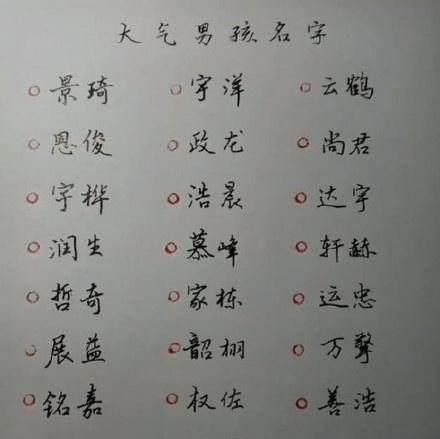 大气男孩名字
景琦 宇洋 云鹤
恩俊 政龙 尚君
宇桦 浩晨 达宇
润生 慕峰 轩赫
哲奇 家栋 运忠
展益 韶栩 万声
铭嘉 权佐 善浩